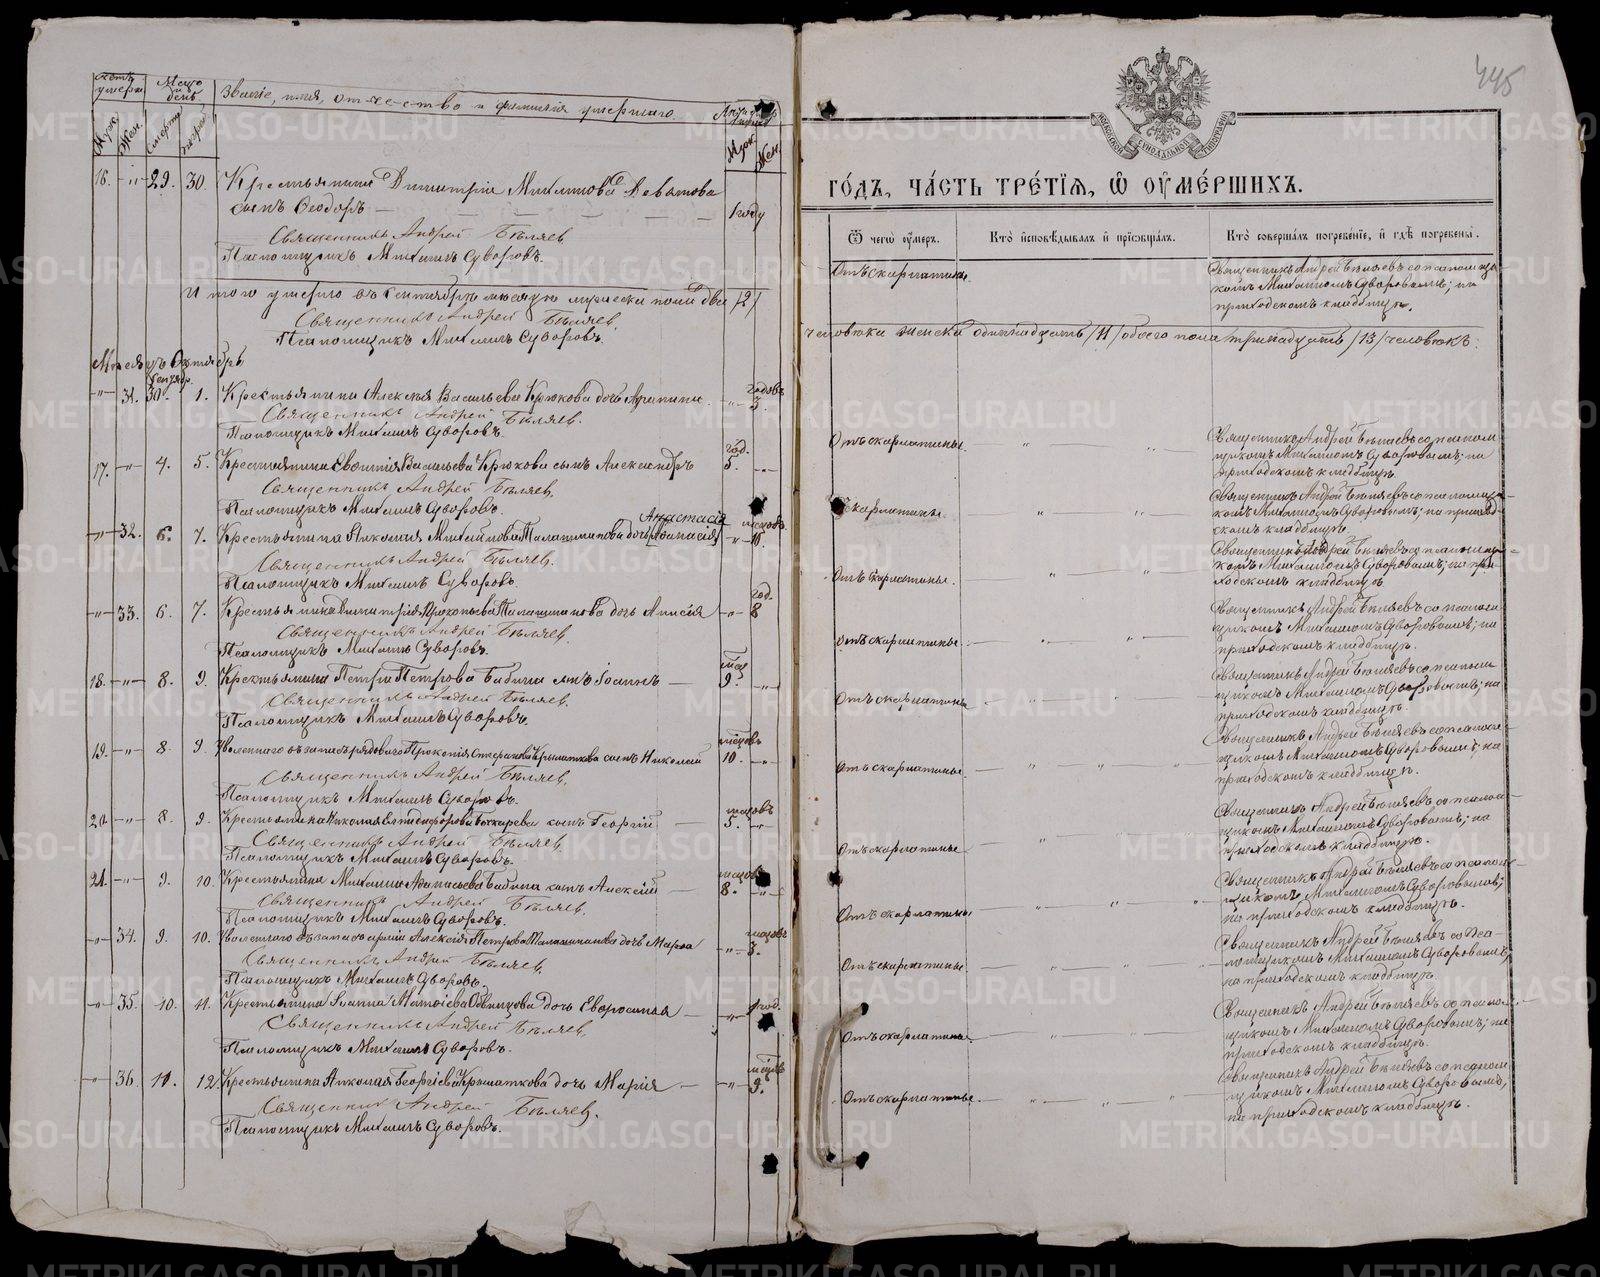 Счетъ умерш.
Мѣсяцъ и день.
Званіе, имя, отчество и фамилія умершаго.
Лѣта умершаго
Муж. Жен. Смерти Погреб. Муж. Жен.
16. -"- 29. 30. Крестьянина Димитрія Михаилова Девятова
сынъ Ѳеодоръ 1 году
Священникъ Андрей Бѣляев
Псаломщикъ Михаилъ Суворовъ.
Итого умерло въ Сентябрѣ мѣсяцѣ мужеска пола два /2/
Священникъ Андрей Бѣляев.
Псаломщикъ Михаилъ Суворовъ.
Мѣсяцъ Октябрь
-"- 31. Сентяб. 30. 1. Крестьянина Алексѣя Васильева Крюкова дочь Агрипина -"- годовъ 3.
Священникъ Андрей Бѣляев.
Псаломщикъ Михаилъ Суворовъ.
17. -"- 4. 5. Крестьянина Евѳимія Васильева Крюкова сынъ Александръ год. 5. -"-
Священникъ Андрей Бѣляев.
Псаломщикъ Михаилъ Суворовъ.
Анастасія
-"- 32. 6. 7. Крестьянина Николая Михайлова Палашманова дочь -"- мѣсцовъ
Священникъ Андрей Бѣляев.
Псаломщикъ Михаилъ Суворовъ
-"- 33. 6. 7. Крестьянина Димитрія Прокопьева дочь Анисія -"- год. 8
Священникъ Андрей Бѣляев.
Псаломщикъ Михаилъ Суворовъ.
18. -"- 8. 9. Крестьянина Петра Петрова Бабина сынъ Іоаннъ 9. -"-
Священникъ Андрей Бѣляев.
Псаломщикъ Михаилъ Суворовъ.
19. -"- 8. 9. Уволеннаго въ запасъ рядоваго Прокопія Стефанова сынъ Николай мѣсцовъ 10. -"-
Священникъ Андрей Бѣляев.
Псаломщикъ Михаилъ Суворовъ.
20. -"- 8. 9. Крестьянина Николая сынъ Георгій мѣсцовъ 5. -"-
Священникъ Андрей Бѣляев
Псаломщикъ Михаилъ Суворовъ.
21. -"- 9. 10. Крестьянина Михаила Аѳанасьева Бабина сынъ Алексій мѣсцовъ 8. -"-
Священникъ Андрей Бѣляев.
Псаломщикъ Михаилъ Суворовъ.
-"- 34. 9. 10. Уволеннаго въ запасъ арміи Алексія Петрова дочь Марѳа -"- мѣсцовъ 3.
Священникъ Андрей Бѣляев.
Псаломщикъ Михаилъ Суворовъ.
-"- 35. 10. 11. Крестьянина Іоанна дочь Евфросинія -"- год.
Священникъ Андрей Бѣляев.
Псаломщикъ Михаилъ Суворовъ.
-"- 36. 11. 12. Крестьянина Николая Георгіева дочь Марія -"- 9.
Священникъ Андрей Бѣляев.
Псаломщикъ Михаилъ Суворовъ.
445
МОСКОВСКОЙ СѴНОДАЛЬНОЙ ТИПОГРАФІИ
ГО́ДЪ, ЧА́СТЬ ТРЕ́ТІѦ, Ѽ ОУМЕ́РШИХЪ.
Ѿ чегѡ̀ оу҆́меръ. Кто̀ и҆сповѣ́дывалъ и҆ прїѡбща́лъ. Кто̀ соверша́лъ погребе́нїе, и҆ гдѣ̀ погребены̀.
Отъ скарлатины Священникъ Андрей Бѣляевъ со псаломщи-
комъ Михаиломъ Суворовымъ; на
приходскомъ кладбищѣ.
человѣка женска одиннадцать /11/ обоего пола тринадцать /13/ человѣкъ.
Отъ скарлатины. Священникъ Андрей Бѣляевъ со псалом-
щикомъ Михаиломъ Суворовымъ; на
приходскомъ кладбищѣ.
скарлатины. Священникъ Андрей Бѣляевъ со псаломщи-
комъ Михаиломъ Суворовымъ; на приход-
скомъ кладбищѣ.
Отъ скарлатины. Священникъ Андрей Бѣляевъ со псаломщи-
комъ Михаиломъ Суворовымъ; на при-
ходскомъ кладбищѣ
Отъ скарлатины. Священникъ Андрей Бѣляевъ со псалом-
щикомъ Михаиломъ Суворовымъ; на
приходскомъ кладбищѣ.
Отъ скарлатины Священникъ Андрей Бѣляевъ со псалом-
щикомъ Михаиломъ Суворовымъ; на
приходскомъ кладбищѣ.
Отъ скарлатины. Священникъ Андрей Бѣляевъ со псалом-
щикомъ Михаиломъ Суворовымъ; на
приходскомъ кладбищѣ.
Отъ скарлатины Священникъ Андрей Бѣляевъ со псалом-
щикомъ Михаиломъ Суворовымъ; на
приходскомъ кладбищѣ.
Отъ скарлатины Священникъ Андрей Бѣляевъ со псалом-
щикомъ Михаиломъ Суворовымъ;
на приходскомъ кладбищѣ.
Отъ скарлатины. Священникъ Андрей Бѣляевъ со пса-
ломщикомъ Михаиломъ Суворовымъ;
на приходскомъ кладбищѣ.
Отъ скарлатины. Священникъ Андрей Бѣляевъ со псалом-
щикомъ Михаиломъ Суворовымъ; на
приходскомъ кладбищѣ.
Отъ скарлатины. Священникъ Андрей Бѣляевъ со псалом-
щикомъ Михаиломъ Суворовымъ;
на приходскомъ кладбищѣ.
METRIKI.GASO-URAL.RU